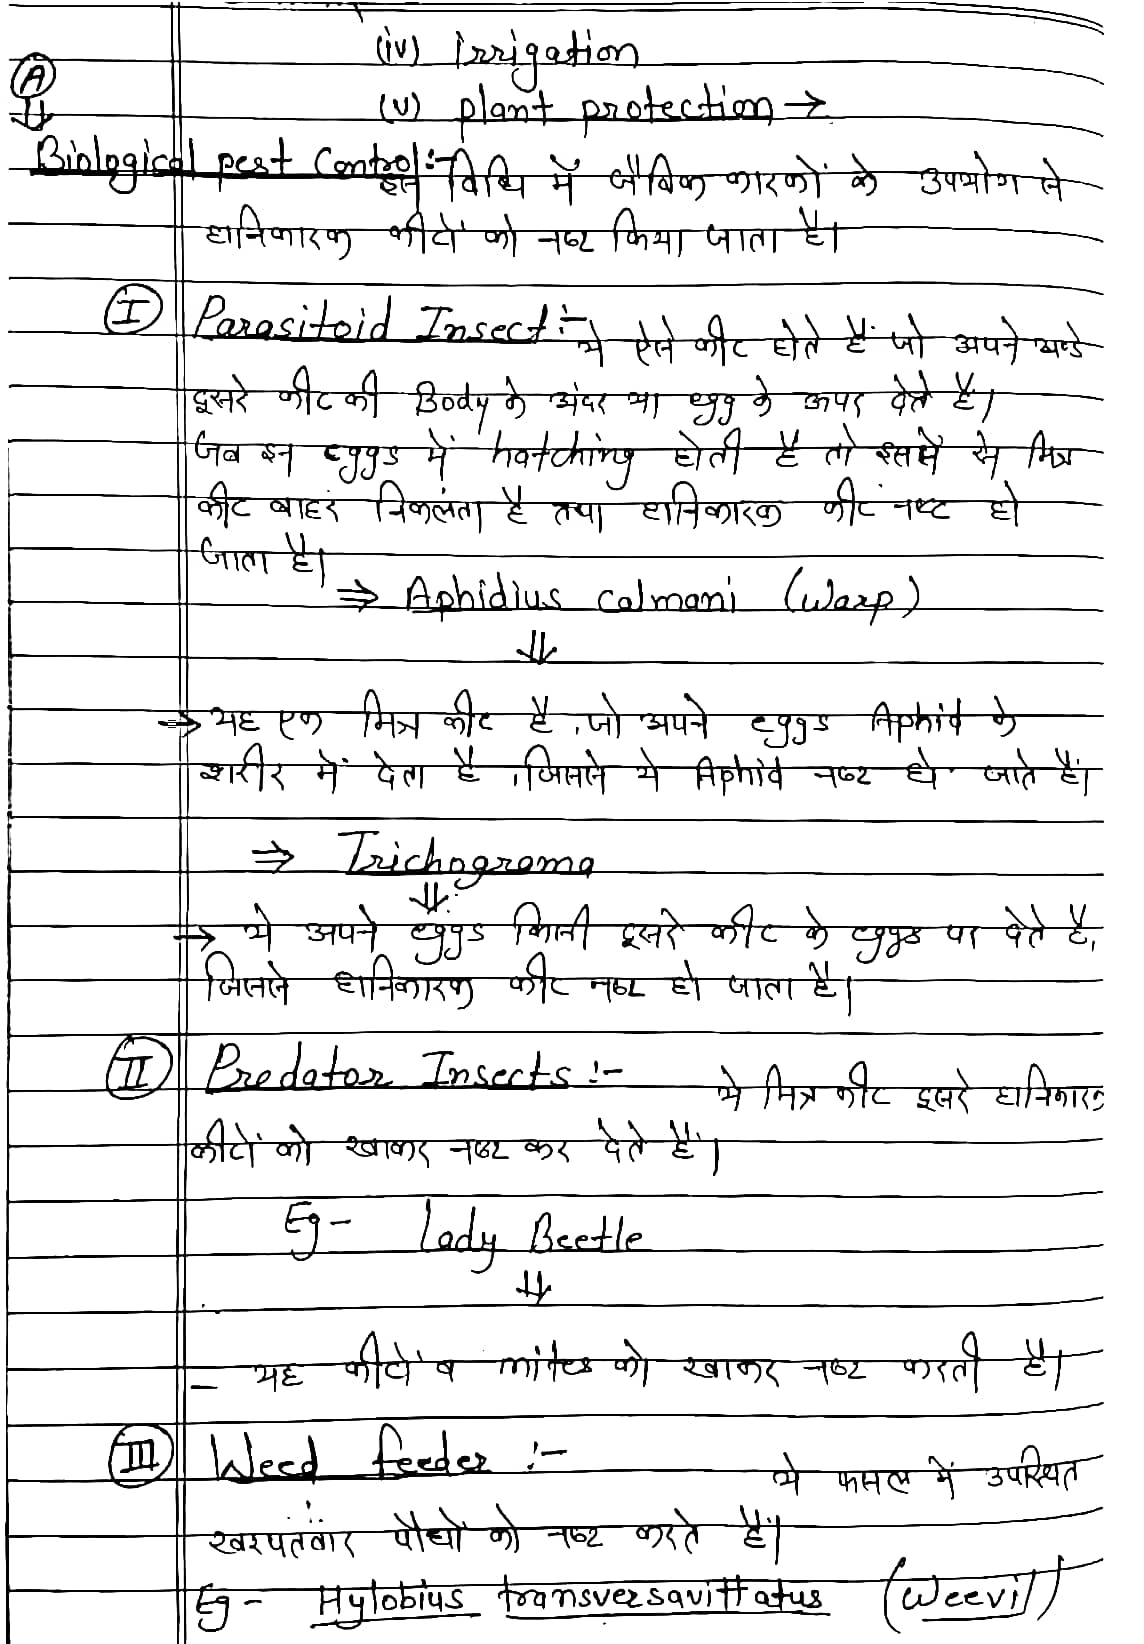 (iv) Irrigation
(A)
⇓
(v) plant protection →
Biological pest Control:- इस विधि में जैविक कारकों के उपयोग से
हानिकारक कीटों को नष्ट किया जाता है।
(I) Parasitoid Insect:- ये ऐसे कीट होते हैं जो अपने अण्डे
दूसरे कीट की Body के अंदर या egg के ऊपर देते हैं।
जब इन eggs में hatching होती है तो इसमें से मित्र
कीट बाहर निकलता है तथा हानिकारक कीट नष्ट हो
जाता है।
⇒ Aphidius calmani (Warp)
⇓
→ यह एक मित्र कीट है, जो अपने eggs Aphid के
शरीर में देता है, जिससे ये Aphid नष्ट हो जाते हैं।
⇒ Trichograma
⇓
→ ये अपने eggs किसी दूसरे कीट के eggs पर देते है,
जिससे हानिकारक कीट नष्ट हो जाता है।
(II) Predator Insects :- ये मित्र कीट दूसरे हानिकारक
कीटों को खाकर नष्ट कर देते हैं।
Eg- Lady Beetle
⇓
- यह कीटों व mites को खाकर नष्ट करती है।
(III) Weed feeder :- ये फसल में उपस्थित
खरपतवार पौधों को नष्ट करते हैं।
Eg- Hylobius transversavittatus (Weevil)